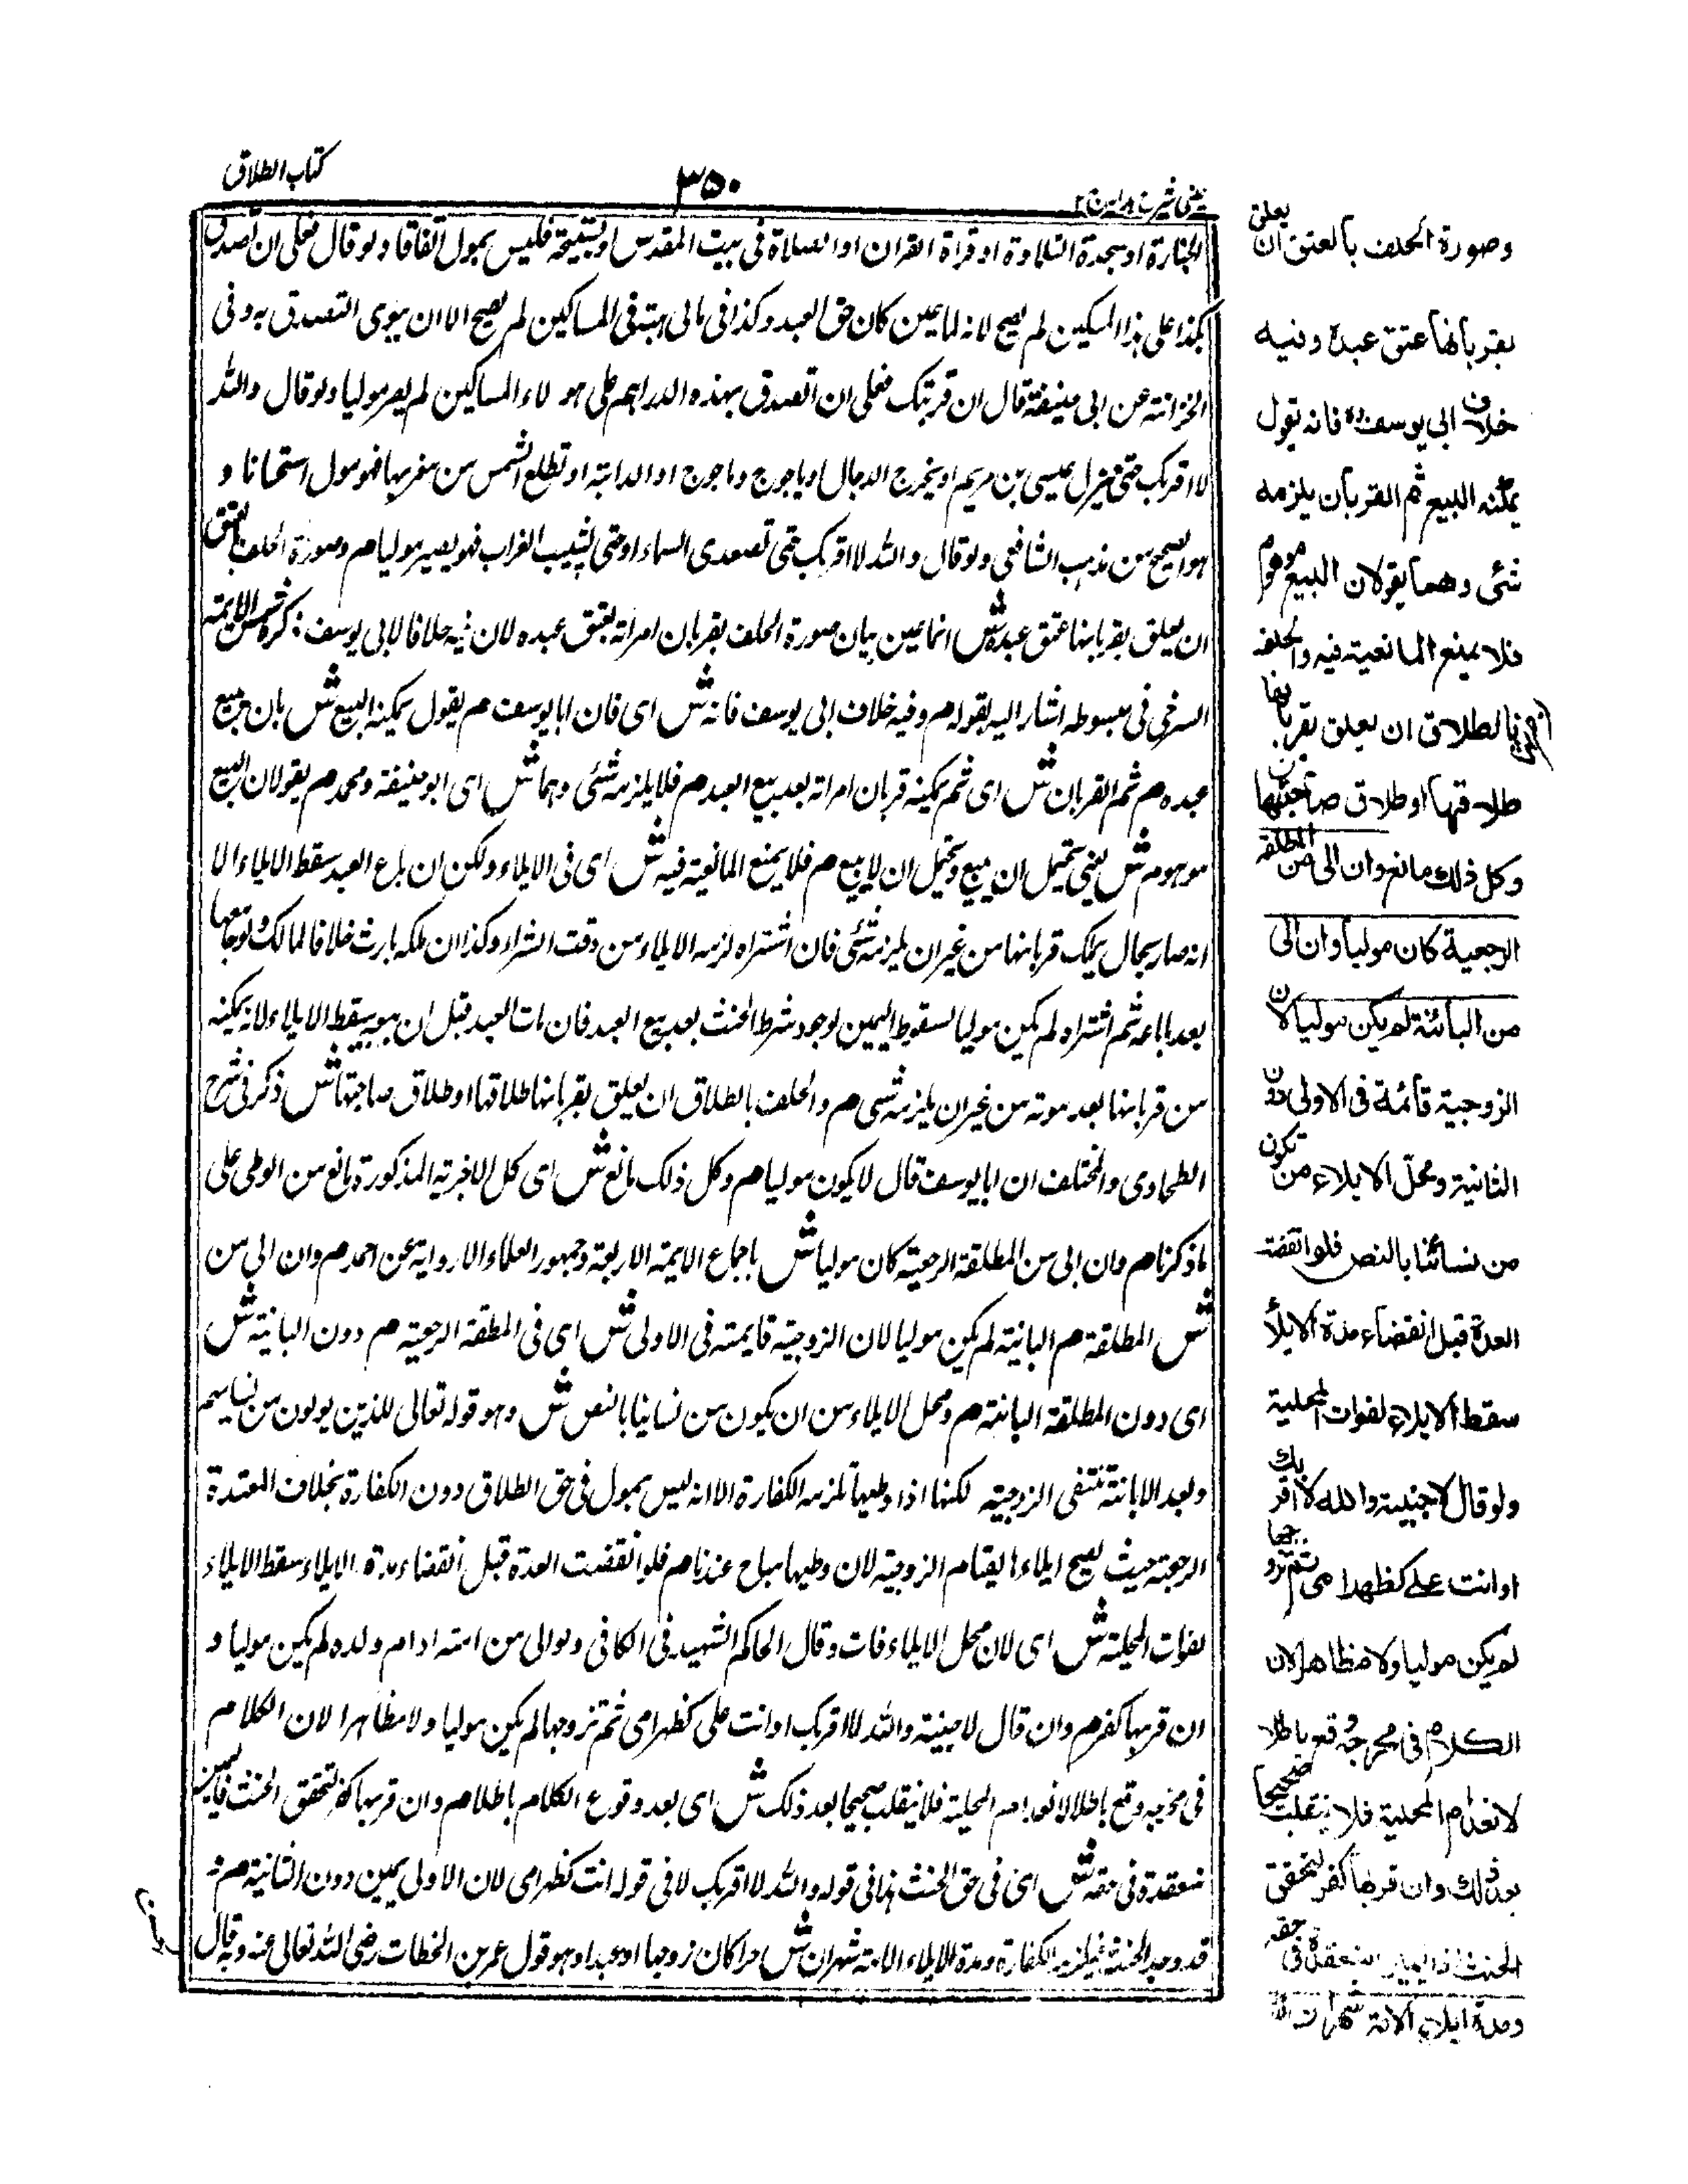 كتاب الطلاق
٣٥٠
عينى شرح هداية ج ٢
الجنازة او سجدة التلاوة او قراة القران او الصلاة فى بيت المقدس او تسبيحة فليس بمول اتفاقا ولو قال فعلى ان تصدق
بكذا على هذا المسكين لم يصح لانه لما عين كان حق العبد وكذا فى مالى هبة فى المساكين لم يصح الا ان ينوى التصدق به وفى
الخزانة عن ابى حنيفة قال ان قربتك فعلى ان اتصدق بهذه الدراهم على هو لاء المساكين لم يصر موليا ولو قال والله
لا اقربك حتى ينزل عيسى بن مريم او يخرج الدجال او ياجوج وماجوج او الدابة او تطلع الشمس من مغربها فهو مول استحانا و
هو الصحيح من مذهب الشافعى ولو قال والله لا اقربك حتى تصعدى السماء او حتى يشيب الغراب فهو يصير موليا م وصورة الحلف بالعتق
ان يعلق بقربانها عتق عبده ش انما عين بيان صورة الحلف بقربان امراته بعتق عبده لان فيه خلافا لابى يوسف ذكره شمس الايمة
السرخسى فى مبسوطه اشار اليه بقوله م وفيه خلاف ابى يوسف فانه ش اى فان ابا يوسف م يقول يمكنه البيع ش بان يبيع
عبده م ثم القربان ش اى ثم يمكنه قربان امراته بعد بيع العبد م فلا يلزمه شئى وهما ش اى ابو حنيفة ومحمد م يقولان البيع
موهوم ش يعنى يحتمل ان يبيع ويحتمل ان لا يبيع م فلا يمنع المانعية فيه ش اى فى الايلاء ولكن ان باع العبد سقط الايلاء الا
انه صار بحال يملك قربانها من غير ان يلزمه شئى فان اشتراه لزمه الايلاء من وقت الشراء وكذا ان ملكه بارث خلافا لمالك ولو جامعها
بعد ما باعه ثم اشتراه لم يكن موليا لسقوط اليمين لوجود شرط الحنث بعد بيع العبد فان مات العبد قبل ان يبيعه سقط الايلاء لانه يمكنه
من قربانها بعد موته من غير ان يلزمه شى م والحلف بالطلاق ان يعلق بقربانها طلاقها او طلاق صاحبتها ش ذكر فى شرح
الطحاوى والمختلف ان ابا يوسف قال لا يكون موليا م وكل ذلك مانع ش اى كل الاجزية المذكورة مانع من الوطى على
ما ذكرنا م وان الى من المطلقة الرجعية كان موليا ش باجماع الايمة الاربعة وجمهور العلماء الا رواية عن احمد م وان الى من
ش المطلقة م البانية لم يكن موليا لان الزوجية قايمة فى الاولى ش اى فى المطلقة الرجعية م دون البانية ش
اى دون المطلقة البانية م ومحل الايلاء من ان يكون من نسانيا بالنص ش وهو قوله تعالى للذين يولون من نسايهم
وبعد الابانة تنتفى الزوجية لكنها اذا وطيها تلزمه الكفارة الا انه ليس بمول فى حق الطلاق دون الكفارة بخلاف المعتدة
الرجعية حيث يصح ايلاءها لقيام الزوجية لان وطيها مباح عندنا م فلو انقضت العدة قبل انقضاء مدة الايلاء سقط الايلاء
لفوات المحلية ش اى لان محل الايلاء فات وقال الحاكم الشهيد فى الكافى ولو الى من امته او ام ولده لم يكن موليا و
ان قربها كفر م وان قال لاجنبية والله لا اقربك او انت على كظهر امى ثم تزوجها لم يكن موليا ولا مظاهرا لان الكلام
فى مخرجه وقع باطلا لانعدام المحلية فلا ينقلب صحيحا بعد ذلك ش اى بعد وقوع الكلام باطلا م وان قربها كفر لتحقق الحنث فاليمين
منعقدة فى حقه ش اى فى حق الحنث هذا فى قوله والله لا اقربك لا فى قوله انت كظهر امى لان الاولى يمين دون الثانية م
قد وجد الحنث فيلزمه الكفارة ومدة الايلاء الامة شهران ش حرا كان زوجها او عبدا وهو قول عمر بن الخطاب رضى الله تعالى عنه وبه قال
وصورة الحلف بالعتق ان يعلق
بقربانها عتق عبده وفيه
خلاف ابى يوسف رح فانه يقول
يمكنه البيع ثم القربان يلزمه
شئى وهما يقولان البيع موهوم
فلا يمنع المانعية فيه والحلف
بالطلاق ان يعلق بقربانها
طلاقها او طلاق صاحبتها
وكل ذلك مانع وان الى من المطلقة
الرجعية كان موليا وان الى
من البائنة لم يكن موليا لان
الزوجية قائمة فى الاولى دون
الثانية ومحل الايلاء من تكون
من نسائنا بالنص فلو انقضت
العدة قبل انقضاء مدة الايلاء
سقط الايلاء لفوات المحلية
ولو قال لاجنبية والله لا اقربك
او انت على كظهر امى ثم تزوجها
لم يكن موليا ولا مظاهرا لان
الكلام فى مخرجه وقع باطلا
لانعدام المحلية فلا ينقلب صحيحا
بعد ذلك وان قربها كفر لتحقق
الحنث اذ اليمين منعقدة فى حقه
ومدة ايلاء الامة شهران